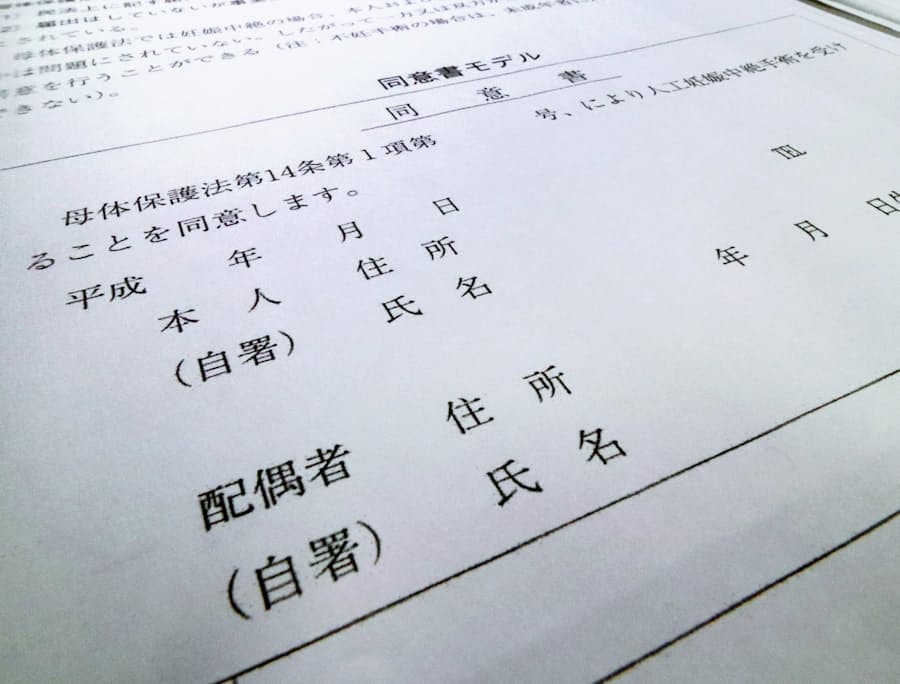 民法上に配す
届出はしていないが事
されている。
母体保護法では妊娠中絶の場合、本人およ
は問題にされていない。したがって一方又は双方が
意を行うことができる（注：不妊手術の場合は、未成年者
きない）。
同意書モデル
同意書
母体保護法第14条第1項第 号、により人工妊娠中絶手術を受け
ることを同意します。
平成 年 月 日
本人 住所 TEL
（自署） 氏名 年 月 日生
配偶者 住所
（自署） 氏名